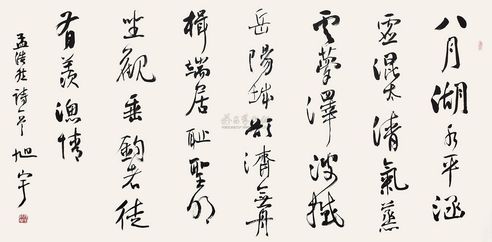 八月湖水平涵
虛混太清氣蒸
雲夢澤波撼
岳陽城欲濟無舟
楫端居耻聖明
坐觀垂釣者徒
有羨漁情
孟浩然詩一首 旭宇